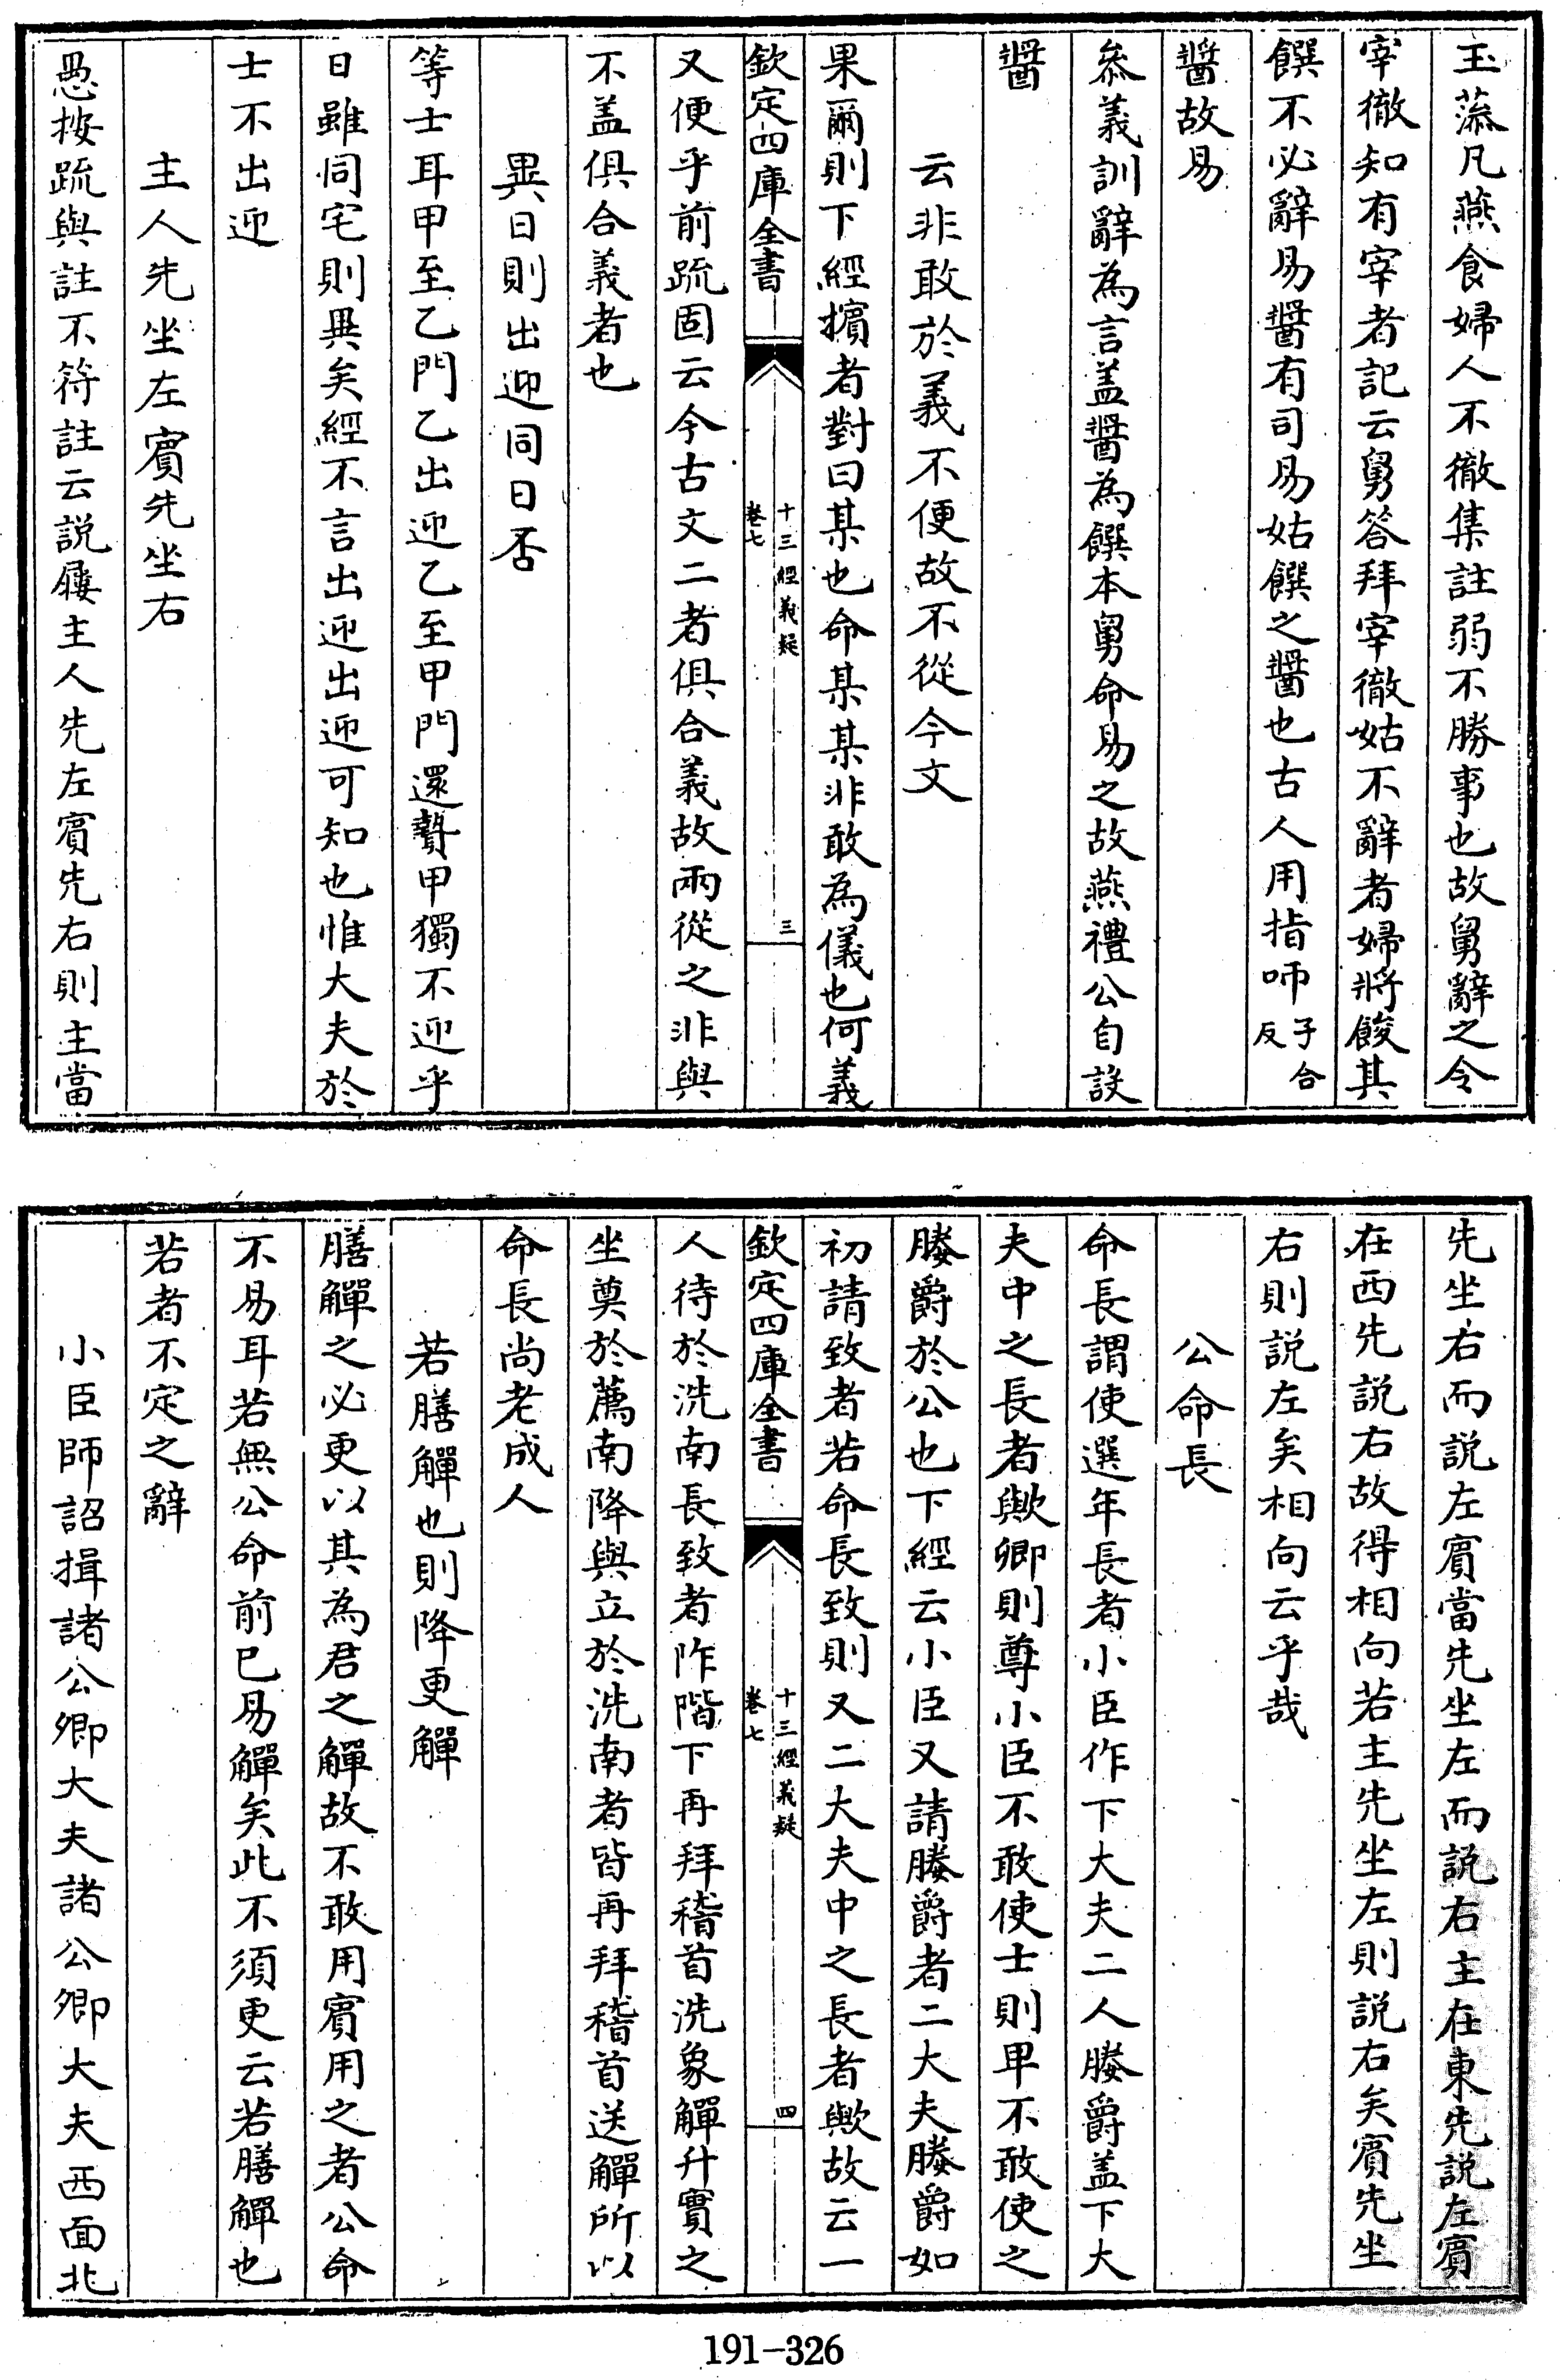 玉藻凡燕食婦人不徹集註弱不勝事也故舅辭之令
宰徹知有宰者記云舅答拜宰徹姑不辭者婦將餕其
饌不必辭易醬有司易姑饌之醬也古人用指咂子合反
醬故易
叅義訓辭為言盖醬為饌本舅命易之故燕禮公自設
醬
云非敢於義不便故不從今文
果爾則下經擯者對曰某也命某某非敢為儀也何義
欽定四庫全書
十三經義疑
卷七
三
又便乎前疏固云今古文二者俱合義故兩從之非與
不盖俱合義者也
異日則出迎同日否
等士耳甲至乙門乙出迎乙至甲門還贄甲獨不迎乎
日雖同宅則異矣經不言出迎出迎可知也惟大夫於
士不出迎
主人先坐左賓先坐右
愚按疏與註不符註云説屨主人先左賓先右則主當
先坐右而説左賓當先坐左而説右主在東先説左賓
在西先説右故得相向若主先坐左則説右矣賓先坐
右則説左矣相向云乎哉
公命長
命長謂使選年長者小臣作下大夫二人媵爵盖下大
夫中之長者歟卿則尊小臣不敢使士則卑不敢使之
媵爵於公也下經云小臣又請媵爵者二大夫媵爵如
初請致者若命長致則又二大夫中之長者歟故云一
欽定四庫全書
十三經義疑
卷七
四
人待於洗南長致者阼階下再拜稽首洗象觶升實之
坐奠於薦南降與立於洗南者皆再拜稽首送觶所以
命長尚老成人
若膳觶也則降更觶
膳觶之必更以其為君之觶故不敢用賓用之者公命
不易耳若無公命前已易觶矣此不須更云若膳觶也
若者不定之辭
小臣師詔揖諸公卿大夫諸公卿大夫西面北
191-326